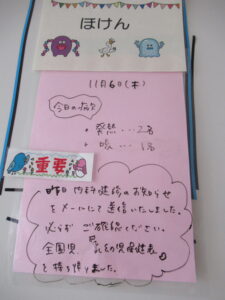 ほけん
11月6日(木)
今日の病欠
・発熱…2名
・咳…1名
重要
昨日 内科健診のお知らせ
をメールにて送信いたしました。
必ず ご確認ください。
全園児
を持ち帰りました。